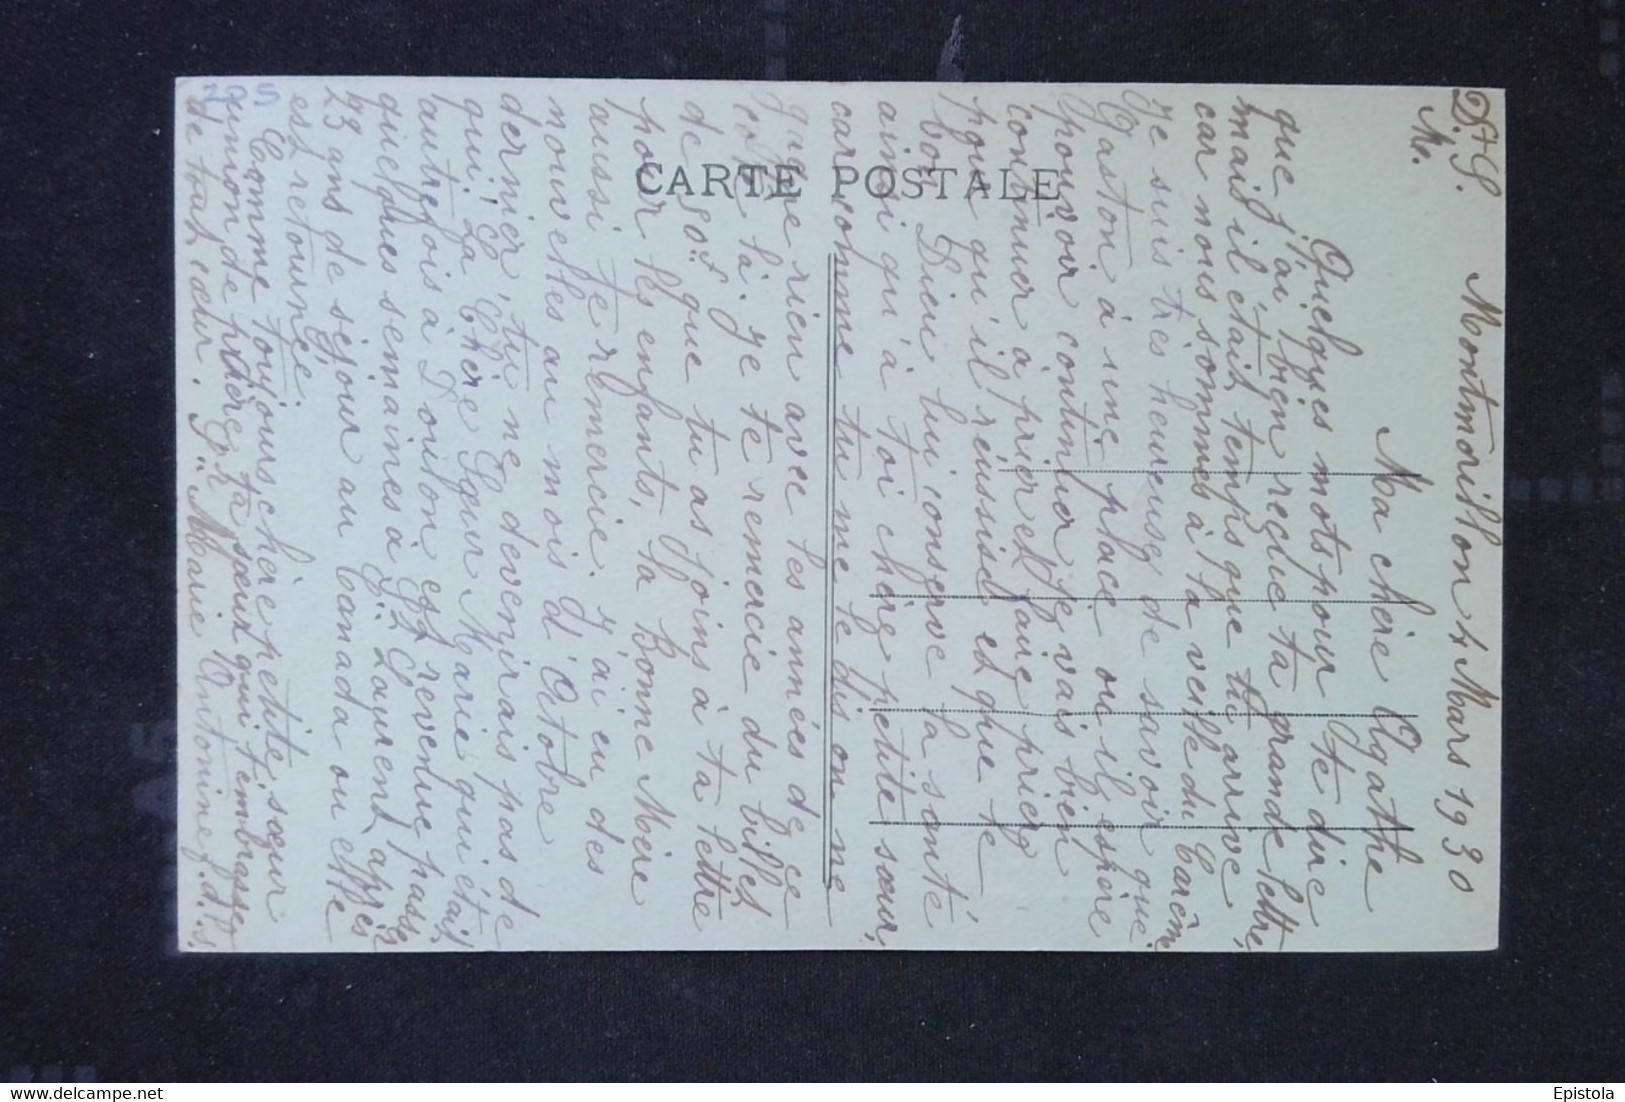 D.+S. Montmorillon 4 Mars 1930
M.
Ma chère Agathe
Quelques mots pour te dire
que j'ai bien reçue ta grande lettre,
mais il était temps que tu arrive
car nous sommes à la veille du Carême
Je suis très heureuse de savoir que
Gaston à une place ou il espère
pouvoir continuer je vais bien
continuer à prier et faire prier
pour qu'il réussise et que le
bon Dieu lui conserve la santé
ainsi qu'à toi chère petite sœur,
car comme tu me le dis on ne
gagne rien avec les années de ce
côté là. Je te remercie du billet
de 50f que tu as joins à ta lettre
pour les enfants, la Bonne Mère
aussi te remercie. J'ai eu des
nouvelles au mois d'Octobre
dernier, tu ne devenirais pas de
qui, La Chère Sœur Marie qui était
autrefois à Touilon est revenue passer
quelques semaines à St Laurent après
23 ans de séjour au Canada ou elle
est retournée.
Comme toujours chère petite sœur
union de prières ta sœur qui t'embrasse
de tout cœur. Sr Marie Antonine f.d.l.s.
CARTE POSTALE
Epistola